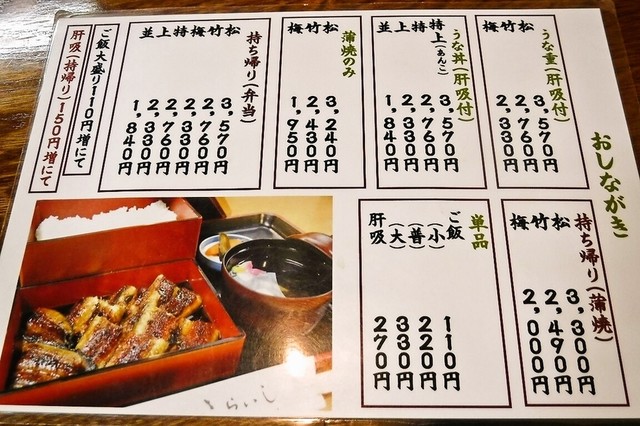 おしながき
うな重(肝吸付)
松 3,570円
竹 2,760円
梅 2,330円
うな丼(肝吸付)
特上(あんこ) 3,570円
特 2,760円
上 2,330円
並 1,840円
蒲焼のみ
松 3,240円
竹 2,430円
梅 1,950円
持ち帰り(弁当)
松 3,570円
竹 2,760円
梅 2,330円
特 2,760円
上 2,330円
並 1,840円
ご飯大盛り110円増にて
肝吸(持帰り)150円増にて
持ち帰り(蒲焼)
松 3,300円
竹 2,490円
梅 2,000円
単品
ご飯
(小) 110円
(普) 220円
(大) 330円
肝吸 270円
らいし